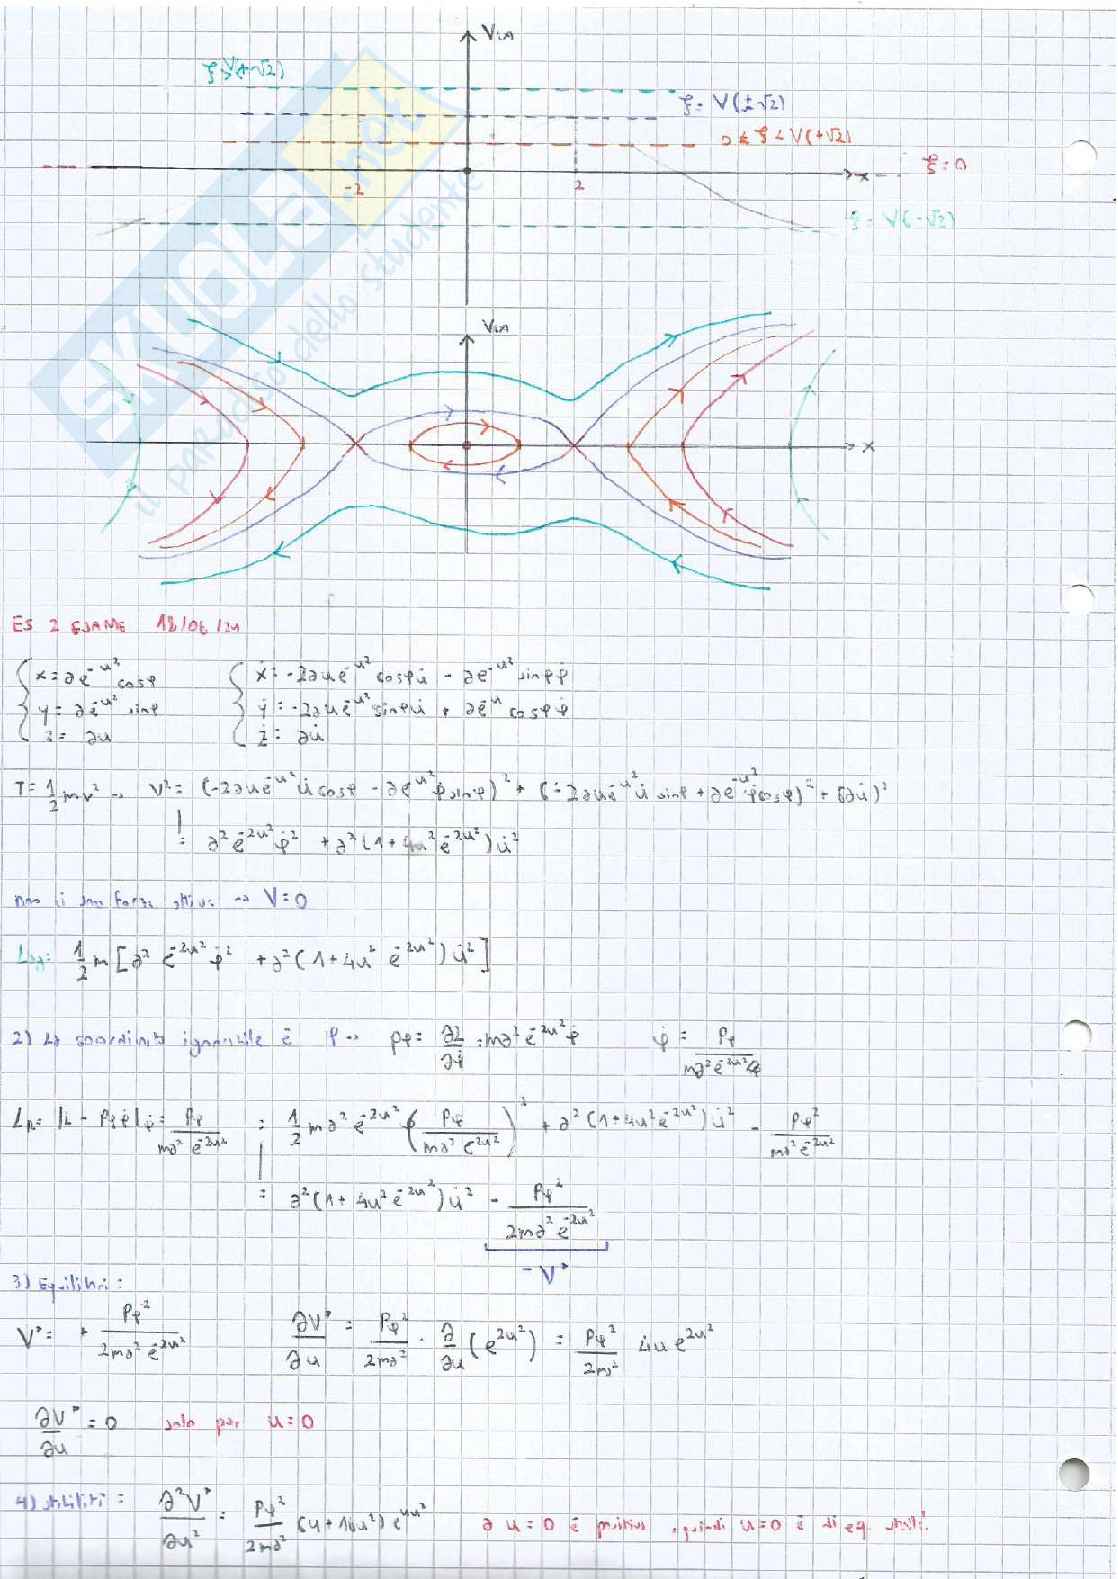 V(x)
ξ > V(±√2)
ξ = V(±√2)
0 < ξ < V(±√2)
ξ = 0
-2
2
x
ξ = V(-√2)
V(x)
x
SKUOLA.net
il paradiso dello studente
ES 2 ESAME 18/06/21
{ x = ae^{-u²} cosφ
{ ẋ = -2aue^{-u²} cosφ u̇ - ae^{-u²} sinφ φ̇
{ y = ae^{-u²} sinφ
{ ẏ = -2aue^{-u²} sinφ u̇ + ae^{-u} cosφ φ̇
{ z = au
{ ż = au̇
T = 1/2 mv² → v² = (-2aue^{-u²} u̇ cosφ - ae^{-u²} φ̇ sinφ)² + (-2aue^{-u²} u̇ sinφ + ae^{-u²} φ̇ cosφ)² + (au̇)²
= a² e^{-2u²} φ̇² + a² (1 + 4u² e^{-2u²}) u̇²
→ V = 0
Lag: 1/2 m [a² e^{-2u²} φ̇² + a² (1 + 4u² e^{-2u²}) u̇²]
2) La coordinata ignorabile è φ → pφ = ∂L/∂φ̇ = ma² e^{-2u²} φ̇ φ̇ = pφ/(ma² e^{-2u²})
L_R = |L - pφ φ̇| φ̇ = pφ/(ma² e^{-2u²}) = 1/2 ma² e^{-2u²} (pφ/(ma² e^{-2u²}))² + a² (1 + 4u² e^{-2u²}) u̇² - pφ²/(ma² e^{-2u²})
= a² (1 + 4u² e^{-2u²}) u̇² - pφ²/(2ma² e^{-2u²})
-V*
3) Equilibri:
V* = + pφ²/(2ma² e^{-2u²}) ∂V*/∂u = pφ²/(2ma²) · ∂/∂u (e^{2u²}) = pφ²/(2ma²) 4u e^{2u²}
∂V*/∂u = 0 solo per u = 0
4) stabilità: ∂²V*/∂u² = pφ²/(2ma²) (4 + 16u²) e^{2u²} a u = 0 è positivo, quindi u = 0 è di eq. stabile.